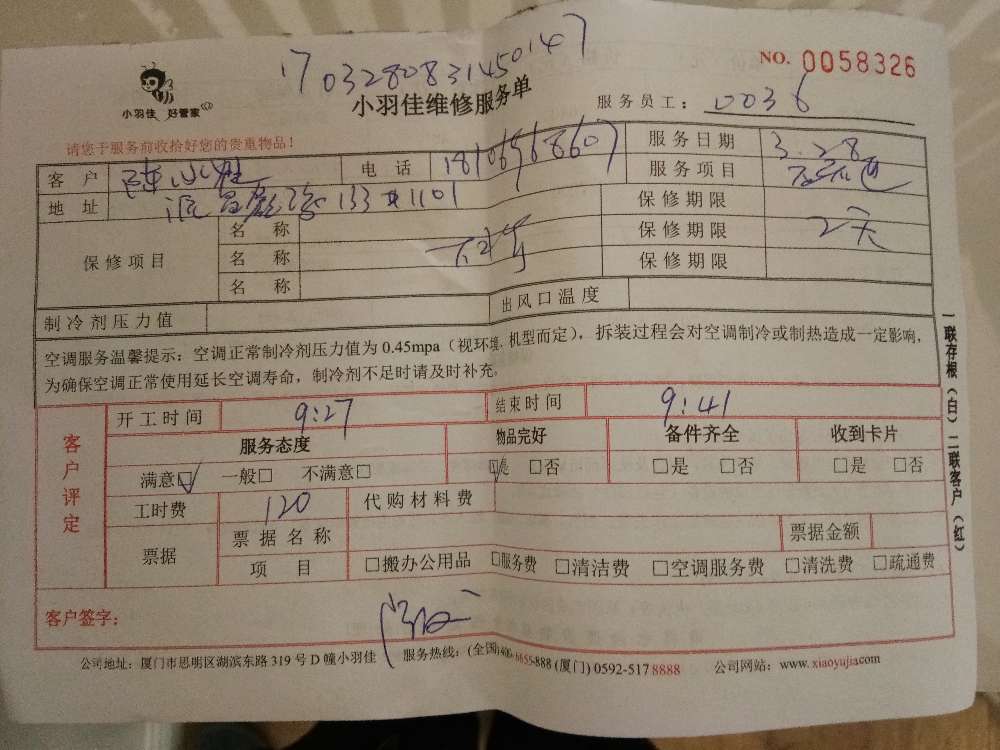 1703280831450147
NO. 0058326
小羽佳 好管家
小羽佳维修服务单
服务员工: 0036
请您于服务前收拾好您的贵重物品!
客户 电话 18106968607 服务日期 3.28
服务项目
地址 133 1101 保修期限
保修项目 名称 保修期限 2天
名称 保修期限
名称
制冷剂压力值 出风口温度
空调服务温馨提示: 空调正常制冷剂压力值为 0.45mpa (视环境、机型而定), 拆装过程会对空调制冷或制热造成一定影响,
为确保空调正常使用延长空调寿命, 制冷剂不足时请及时补充。
客户评定
开工时间 9:27 结束时间 9:41
服务态度 物品完好 备件齐全 收到卡片
满意□ 一般□ 不满意□ □是 □否 □是 □否 □是 □否
工时费 120 代购材料费
票据 票据名称 票据金额
项目 □搬办公用品 □服务费 □清洁费 □空调服务费 □清洗费 □疏通费
客户签字:
一联存根(白)二联客户(红)
公司地址: 厦门市思明区湖滨东路 319 号 D 幢小羽佳 服务热线: (全国)400-6655-888 (厦门) 0592-517 8888 公司网站: www.xiaoyujia.com